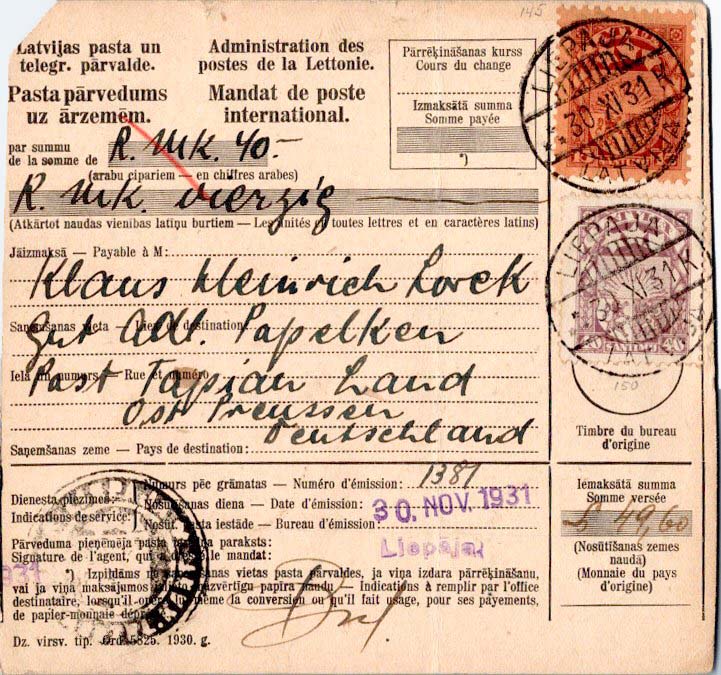 145
Latvijas pasta un
telegr. pārvalde.
Administration des
postes de la Lettonie.
Pasta pārvedums
uz ārzemēm.
Mandat de poste
international.
Pārrēķināšanas kurss
Cours du change
Izmaksātā summa
Somme payée
*)
LIEPAJA
30 XI 31 K
LATVIJA
par summu
de la somme de R. Mk. 40.-
(arabu cipariem — en chiffres arabes)
R. Mk. vierzig
(Atkārtot naudas vienības latiņu burtiem — Les unités en toutes lettres et en caractères latins)
Jāizmaksā — Payable à M:
Klaus Heinrich Lorek
Saņemšanas vieta — Lieu de destination:
Gut Adl. Papelken
Ielā un numurs — Rue et numéro
Post Tapian Land
Ost Preussen
Deutschland
Saņemšanas zeme — Pays de destination:
LIEPAJA
30 XI 31 K
LATVIJA
40 SANTIMU 40
150
Timbre du bureau
d'origine
Dienesta piezīmes:
Indications de service:
Numurs pēc grāmatas — Numéro d'émission: 1381
Nosūtīšanas diena — Date d'émission: 30. NOV. 1931
Nosūt. pasta iestāde — Bureau d'émission: Liepāja
Pārveduma pieņēmēja pasta paraksts:
Signature de l'agent, qui a dressé le mandat:
Iemaksātā summa
Somme versée
49,60
(Nosūtīšanas zemes
naudā)
(Monnaie du pays
d'origine)
1931
*) Izpildāms no saņemšanas vietas pasta pārvaldes, ja viņa izdara pārrēķināšanu,
vai ja viņa maksājumos lieto mazvērtīgu papīra naudu — Indications à remplir par l'office
destinataire, lorsqu'il opère lui-même la conversion ou qu'il fait usage, pour ses payements,
de papier-monnaie déprécié.
Dz. virsv. tip. Ord. 5825. 1930. g.